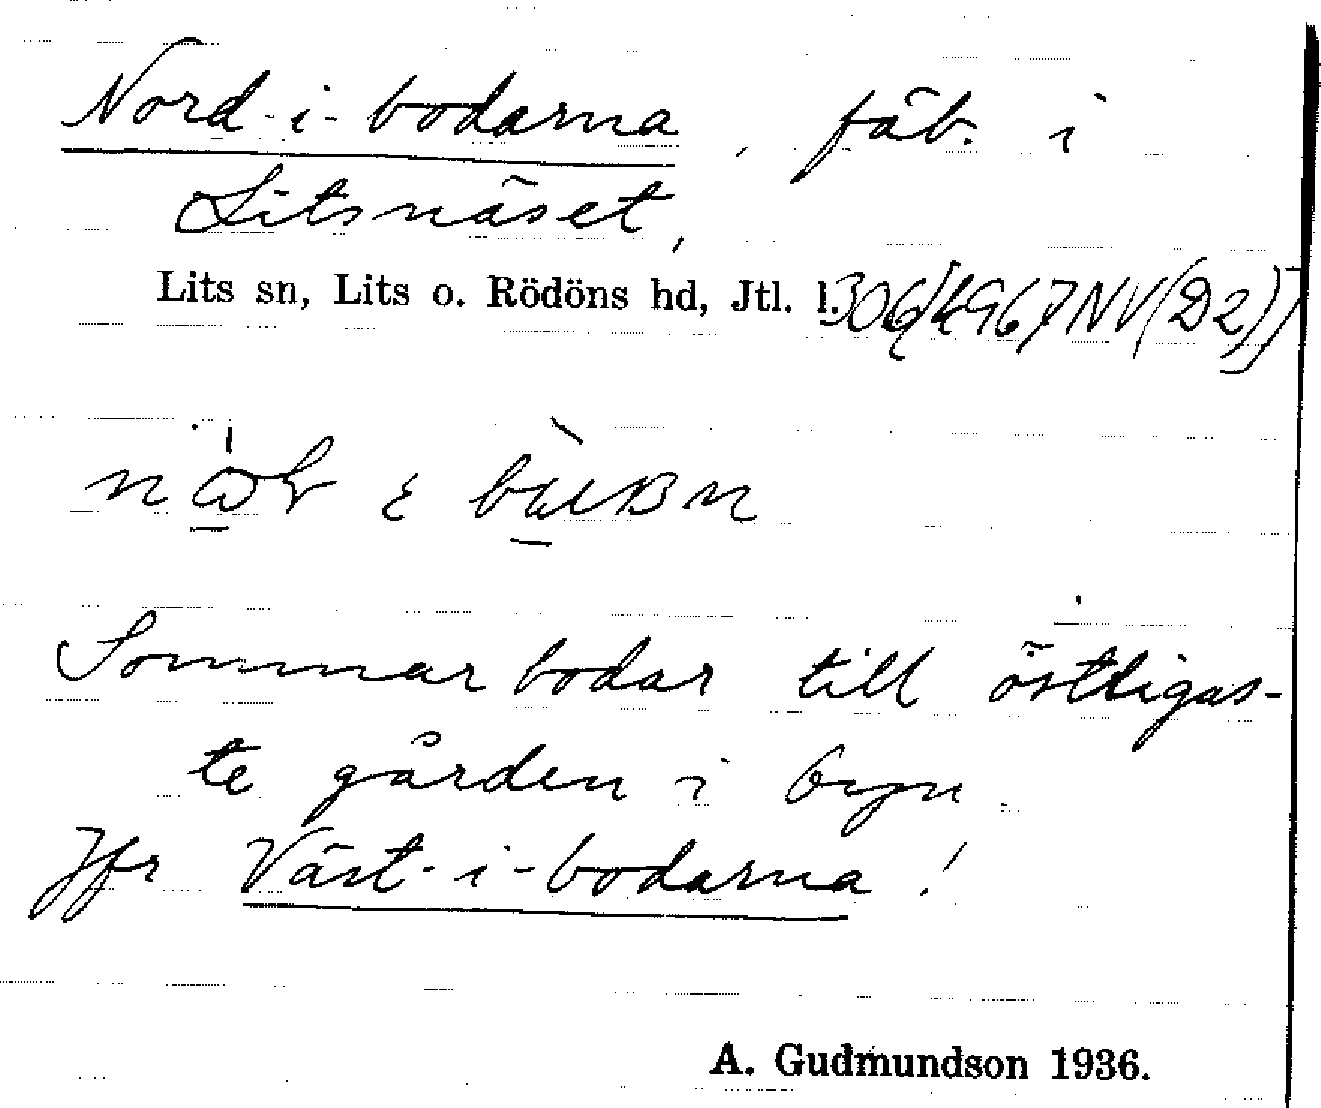 Nord-i-bodarna, fäb. i
Litsnäset,
Lits sn, Lits o. Rödöns hd, Jtl. l.
Sommarbodar till östligas-
te gården i byn.
Jfr Väst-i-bodarna!
A. Gudmundson 1936.